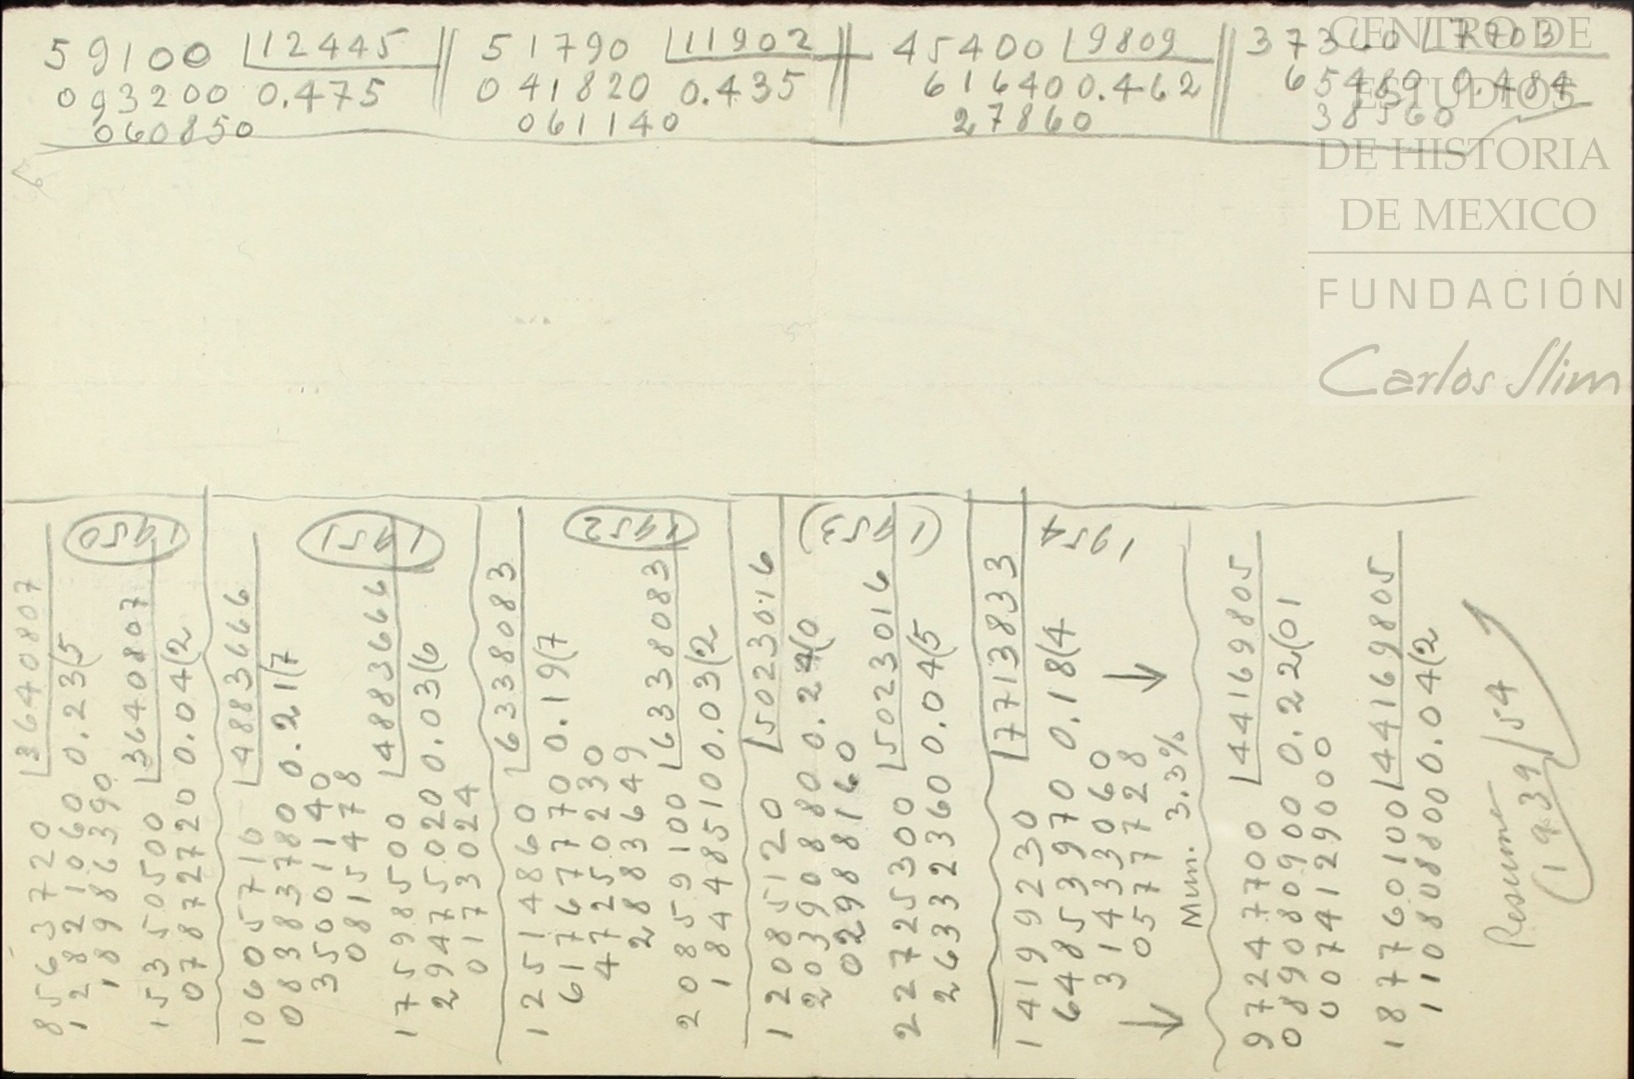 59100 12445
093200 0.475
060850
51790 11902
041820 0.435
061140
45400 9809
61640 0.462
27860
65480 0.484
38560
CENTRO DE
ESTUDIOS
DE HISTORIA
DE MEXICO
FUNDACIÓN
Carlos Slim
1950
8563720 3640807
12821060 0.23(5
18986390
15350500 3640807
07872720 0.04(2
1951
10605710 4883666
08383780 0.21(7
35001140
0815478
17598500 4883666
29475020 0.03(6
0173024
1952
12514860 6338083
61767770 0.19(7
47250230
2883649
20859100 6338083
18448510 0.03(2
(1953)
12085120 5023016
20390880 0.24(0
02988160
22725300 5023016
26332360 0.04(5
1954
14199230 7713833
64853970 0.18(4
31433060
0577728
Mun. 3.3%
97247700 44169805
089080900 0.22(01
0074129000
187760100 44169805
110808800 0.04(2
Resumen
(1939/54